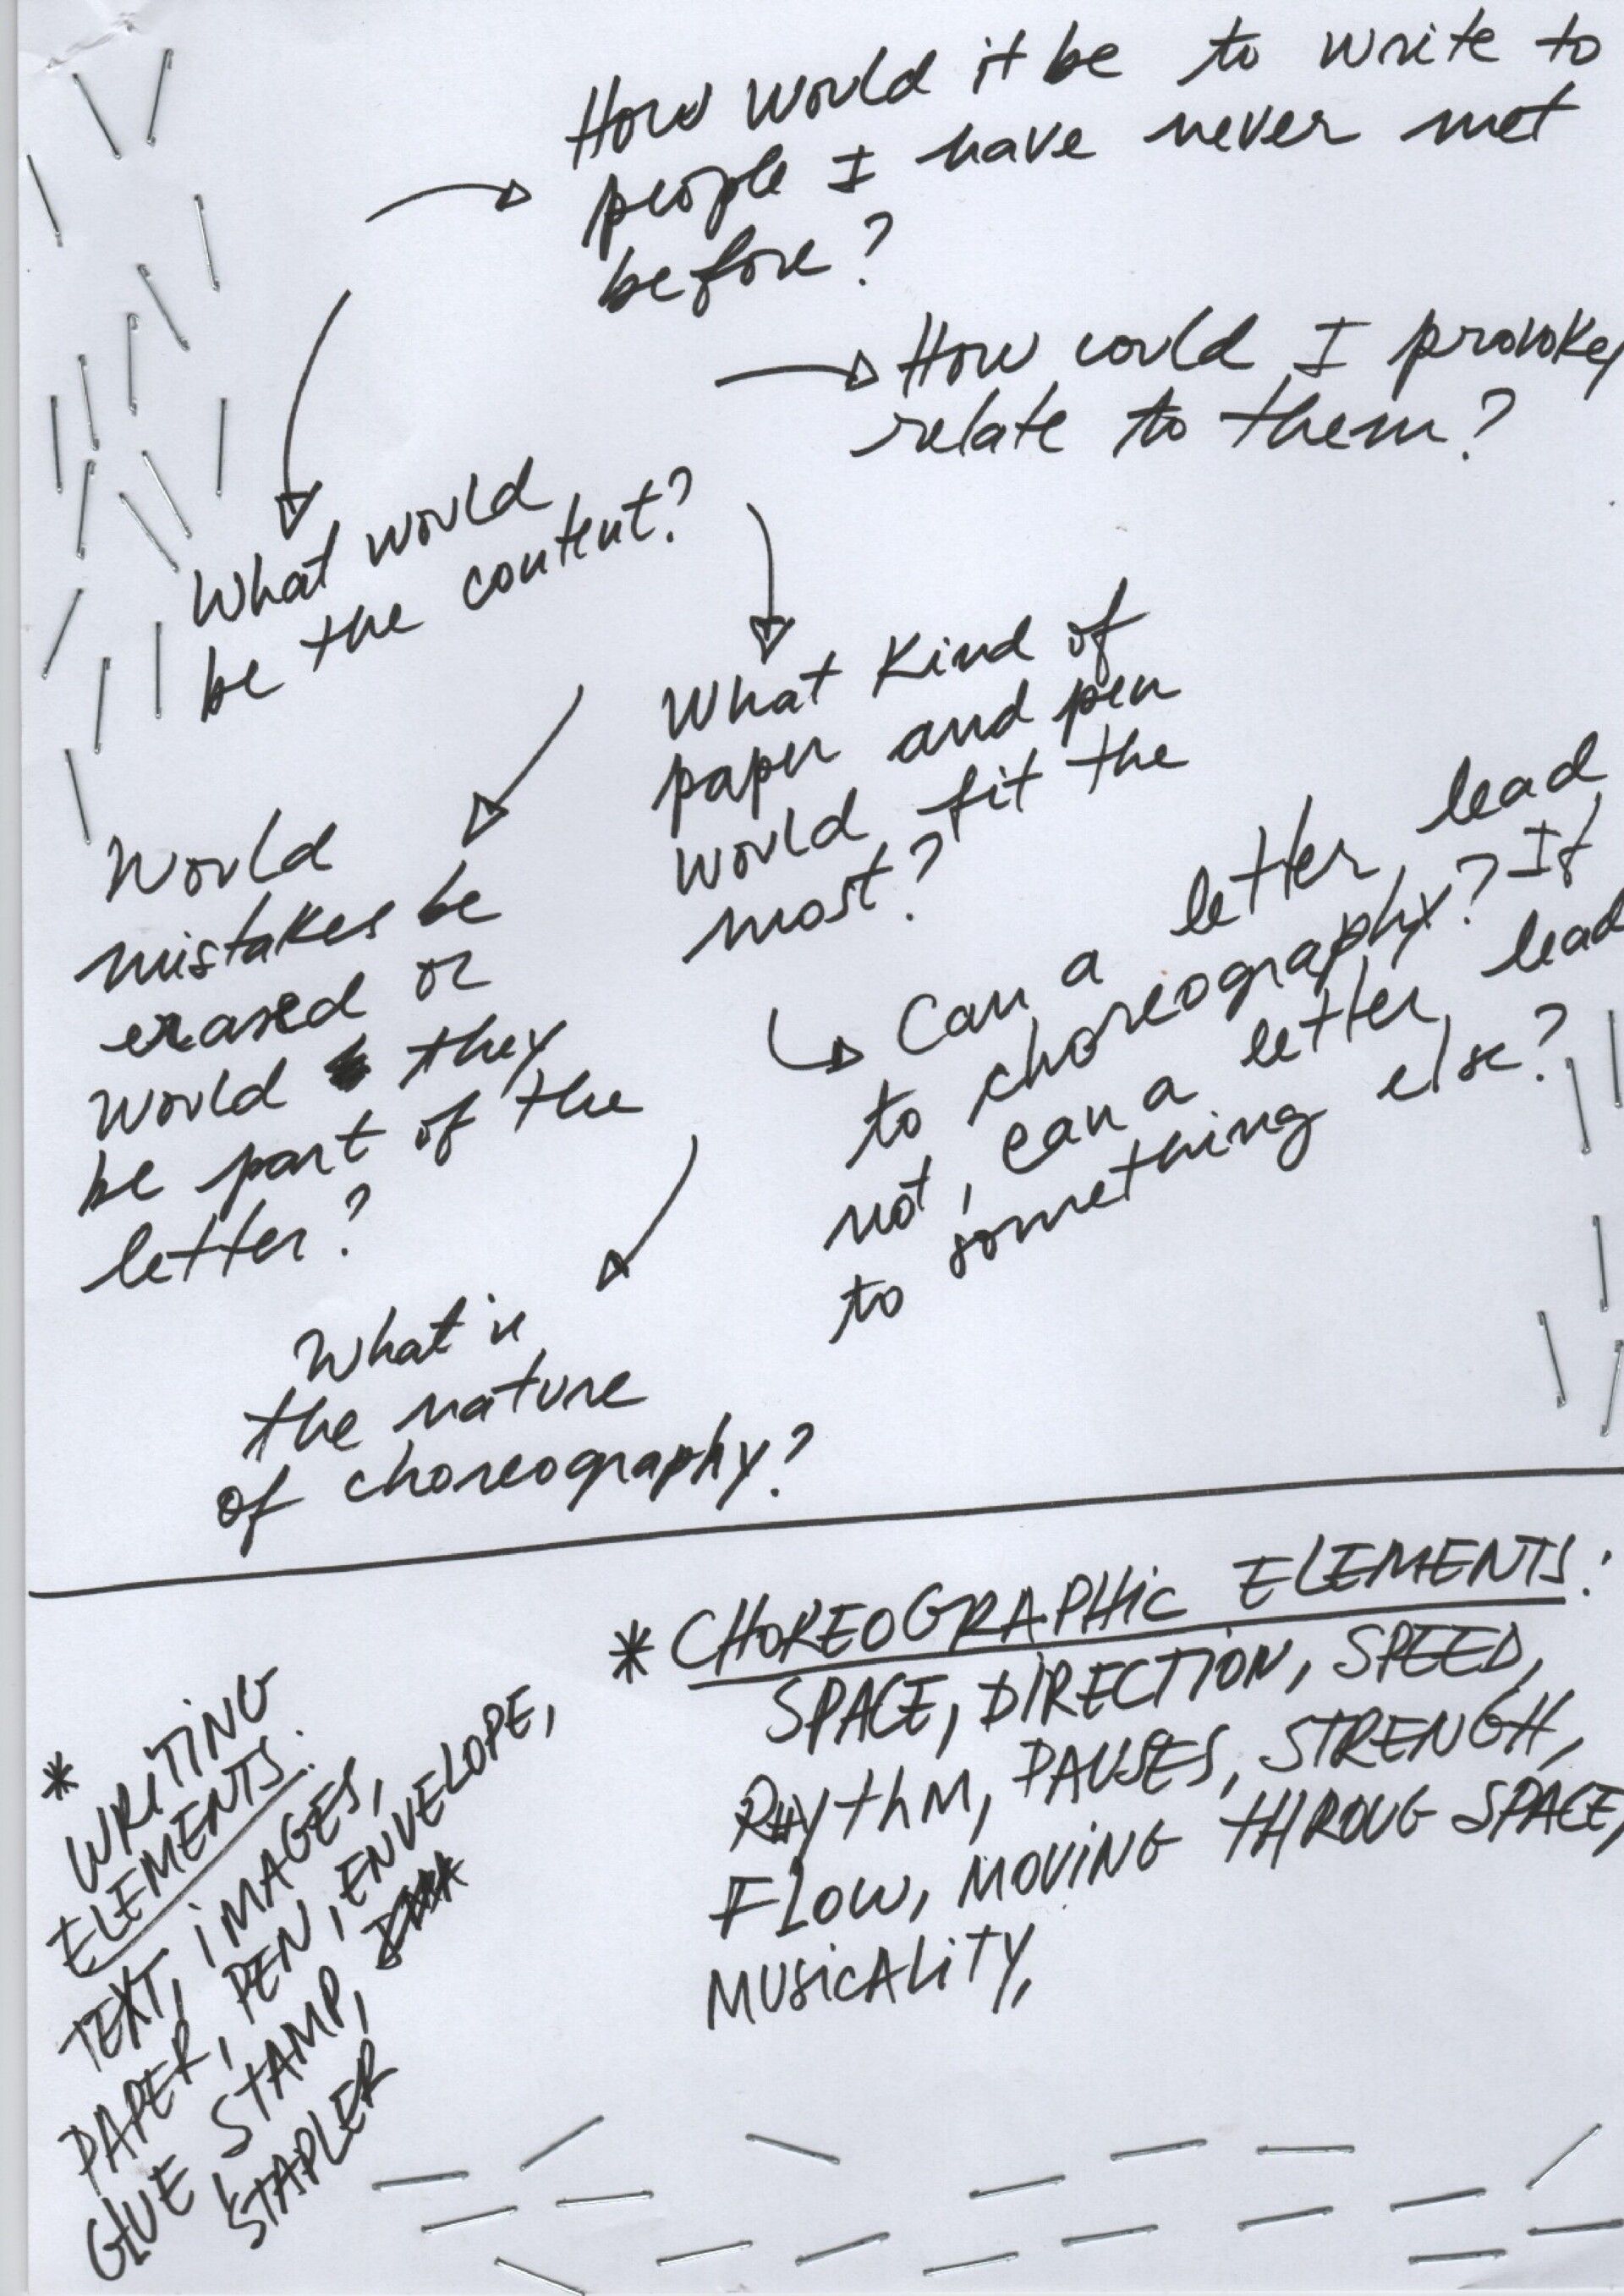 How would it be to write to
people I have never met
before?
How could I provoke,
relate to them?
What would
be the content?
What kind of
paper and pen
would fit the
most?
Would
mistakes be
erased or
would they
be part of the
letter?
Can a letter lead
to choreography? If
not, can a letter lead
to something else?
What is
the nature
of choreography?
* CHOREOGRAPHIC ELEMENTS:
SPACE, DIRECTION, SPEED,
RHYTHM, PAUSES, STRENGH,
FLOW, MOVING THROUG SPACE,
MUSICALITY,
*
WRITING
ELEMENTS:
TEXT, IMAGES,
PAPER, PEN, ENVELOPE,
GLUE, STAMP,
STAPLER